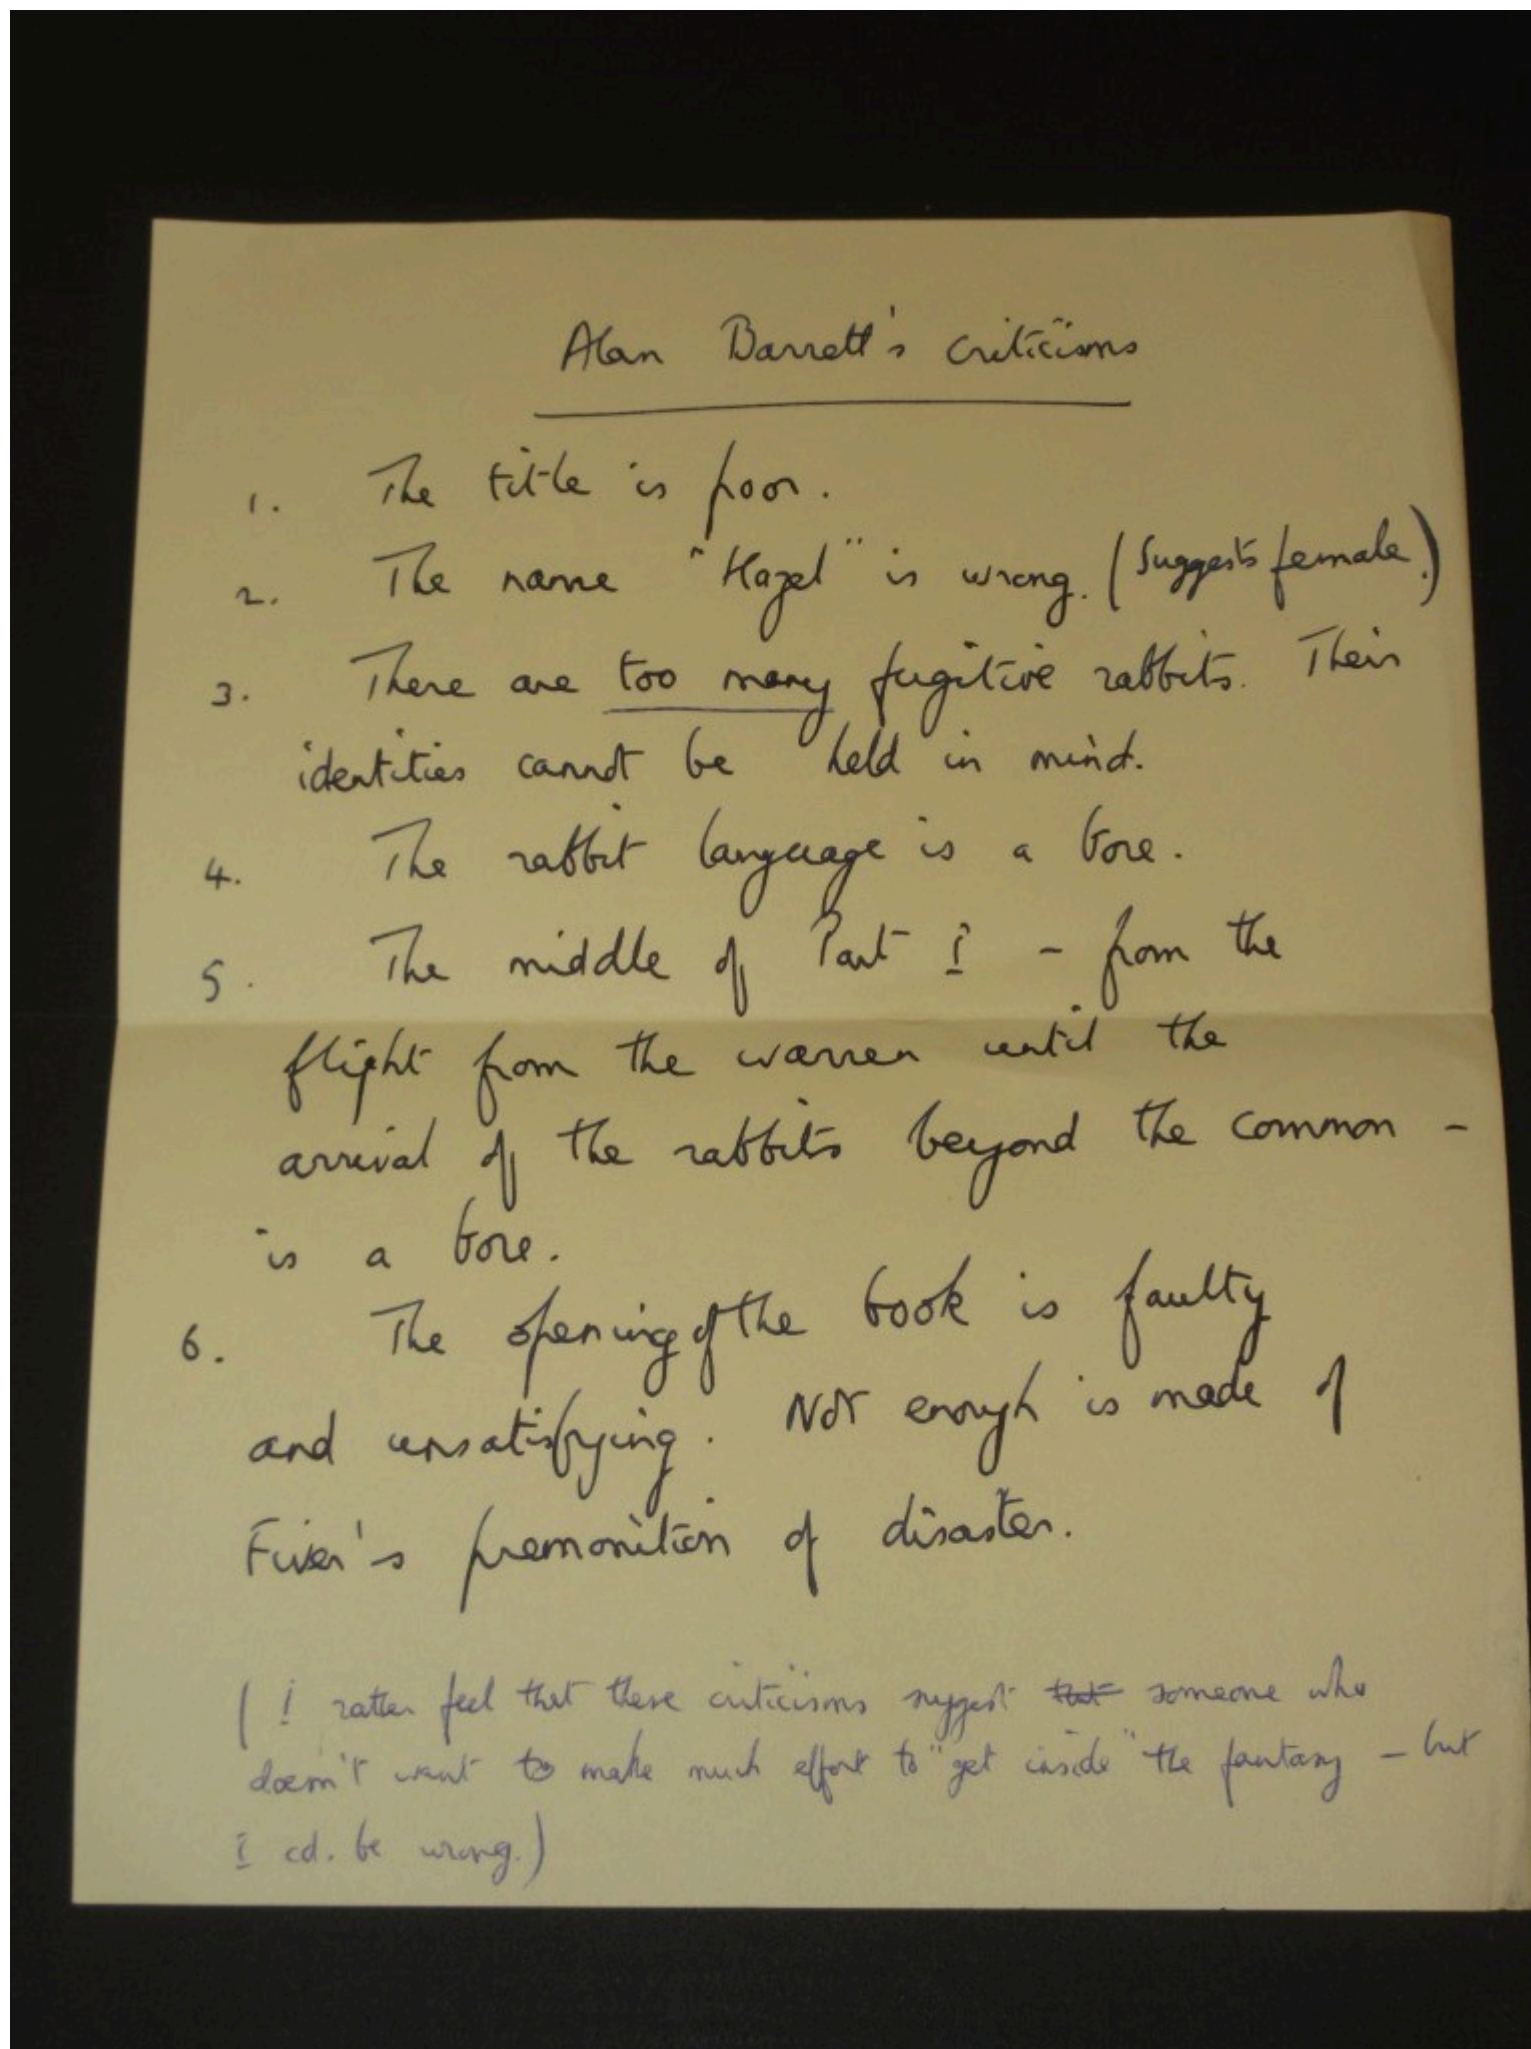 Alan Barrett's criticisms
1. The title is poor.
2. The name "Hazel" is wrong. (Suggests female.)
3. There are too many fugitive rabbits. Their
identities cannot be held in mind.
4. The rabbit language is a bore.
5. The middle of Part I - from the
flight from the warren until the
arrival of the rabbits beyond the common -
is a bore.
6. The opening of the book is faulty
and unsatisfying. Not enough is made of
Fiver's premonition of disaster.
(I rather feel that these criticisms suggest that someone who
doesn't want to make much effort to "get inside" the fantasy - but
I cd. be wrong.)